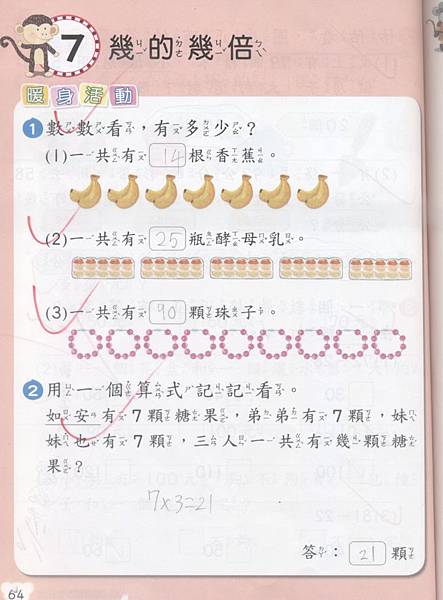 7 幾的幾倍
暖身活動
1 數數看，有多少？
(1)一共有 14 根香蕉。
(2)一共有 25 瓶酵母乳。
(3)一共有 90 顆珠子。
2 用一個算式記記看。
如安有7顆糖果，弟弟有7顆，妹
妹也有7顆，三人一共有幾顆糖
果？
7×3=21
答： 21 顆
64